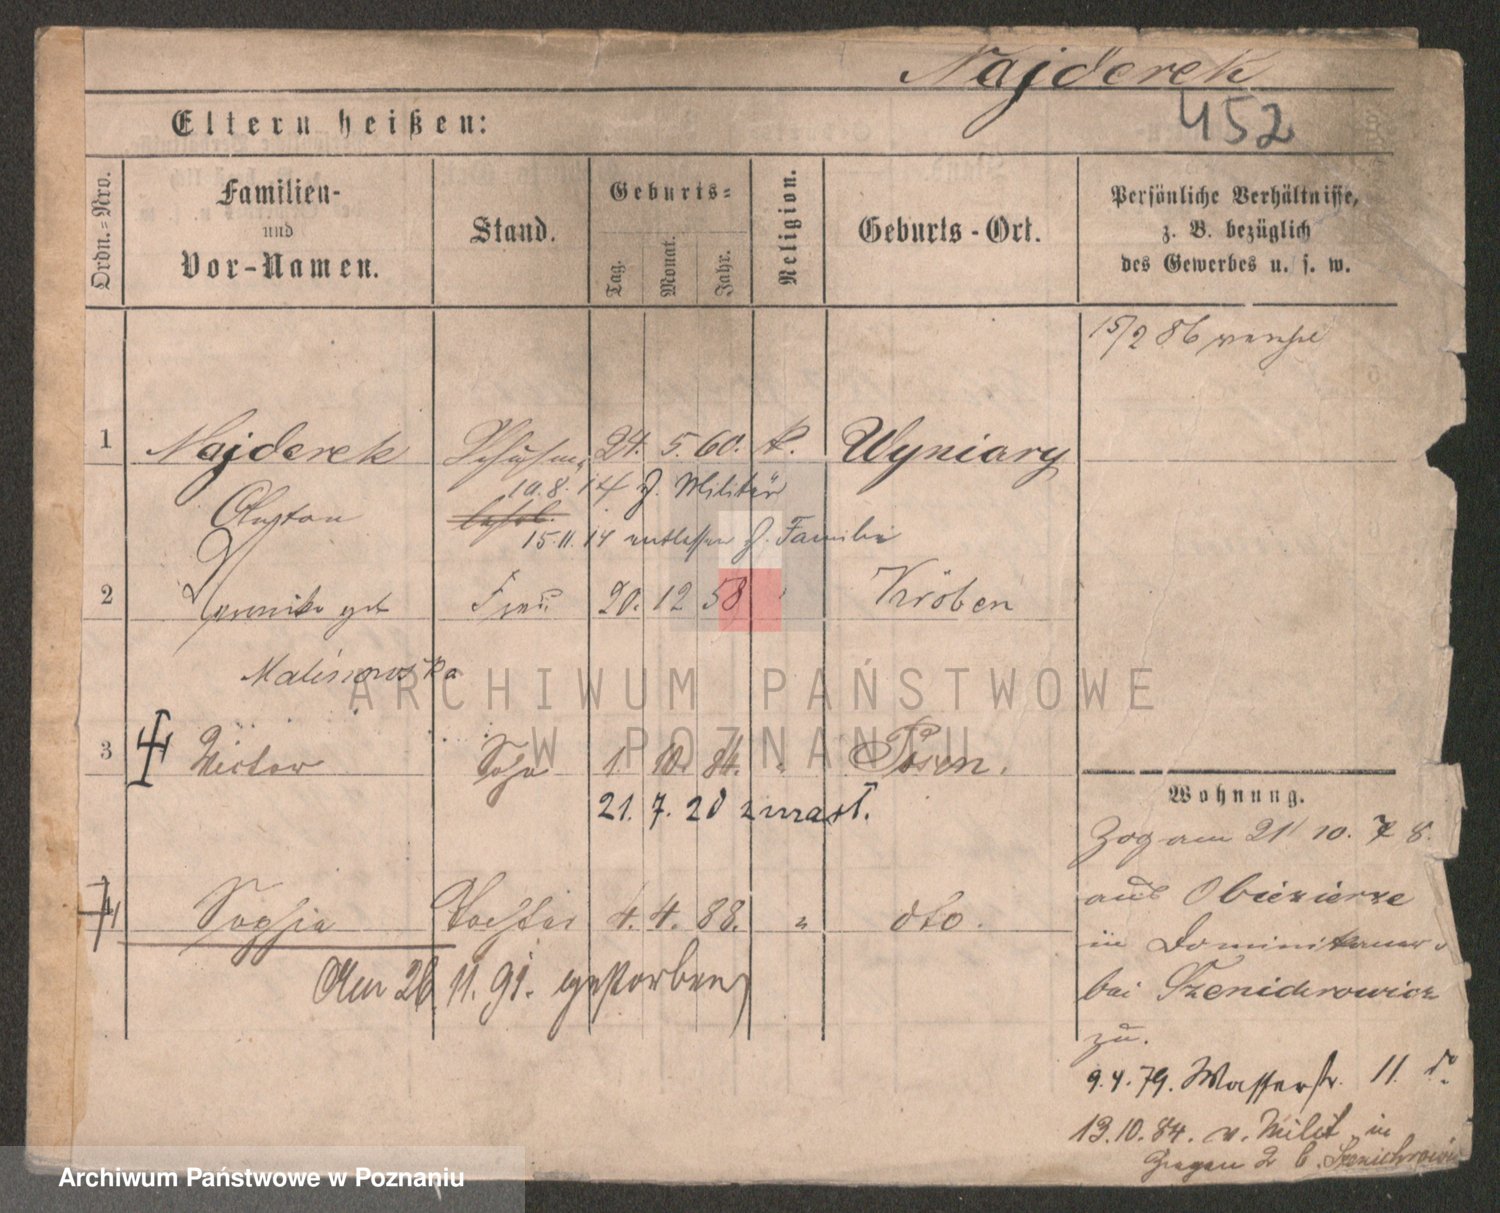 Najderek
452
Eltern heißen:
Ordn.=Nro.
Familien-
und
Vor-Namen.
Stand.
Geburts=
Tag.
Monat.
Jahr.
Religion.
Geburts-Ort.
Persönliche Verhältnisse,
z. B. bezüglich
des Gewerbes u. s. w.
15/2 86
1 Najderek 24. 5. 60. k. Wyniary
10.8.14 z. Militär
15.11.14 entlassen z. Familie
2 geb Frau 20. 12 58 " Kröben
Malinowska
3 Victor Sohn 1. 10. 84. " Posen.
21. 7. 20
4 Sophia Tochter 4. 4. 88. " dto.
Am 26 11. 91. gestorben
Wohnung.
Zog am 21/10. 78.
aus Obiezierze
in Dominikaner
bei
zu.
9.4.79. Wasserstr. 11
13.10.84. v. Milit in
ARCHIWUM PAŃSTWOWE
W POZNANIU
Archiwum Państwowe w Poznaniu